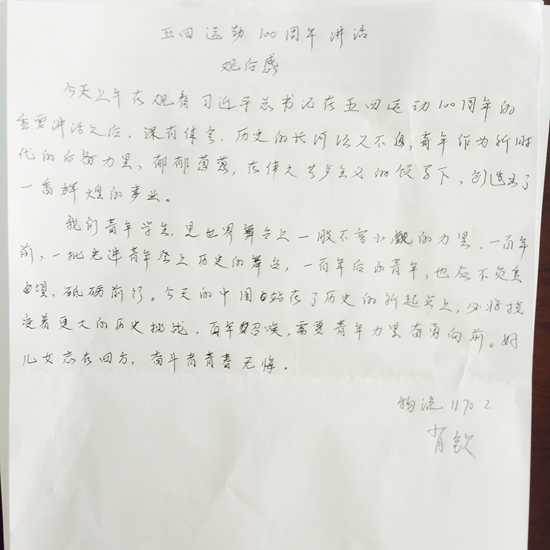 五四运动100周年讲话
观后感
今天上午在观看习近平总书记在五四运动100周年的
重要讲话之后，深有体会。历史的长河治久不息，青年作为新时
代的后备力量，郁郁葱葱，在伟大共产主义的领导下，创造出了
一番辉煌的事业。
我们青年学生是世界舞台上一股不容小觑的力量，一百年
前，一批先进青年登上历史的舞台，一百年后的青年，也应不负
，砥砺前行。今天的中国站在了历史的新起点上，必将接
受着更大的历史挑战，百年召唤，需要青年力量奋勇向前。好
儿女志在四方，奋斗者青春无悔。
物流1702
肖钦